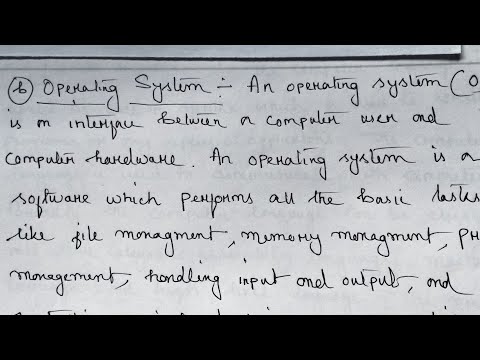 b Operating System :- An operating system (O
is an interface between a computer user and
Computer hardware. An operating system is a
software which performs all the basic tasks
like file managment, memory managment, pr
management, handling input and output, and